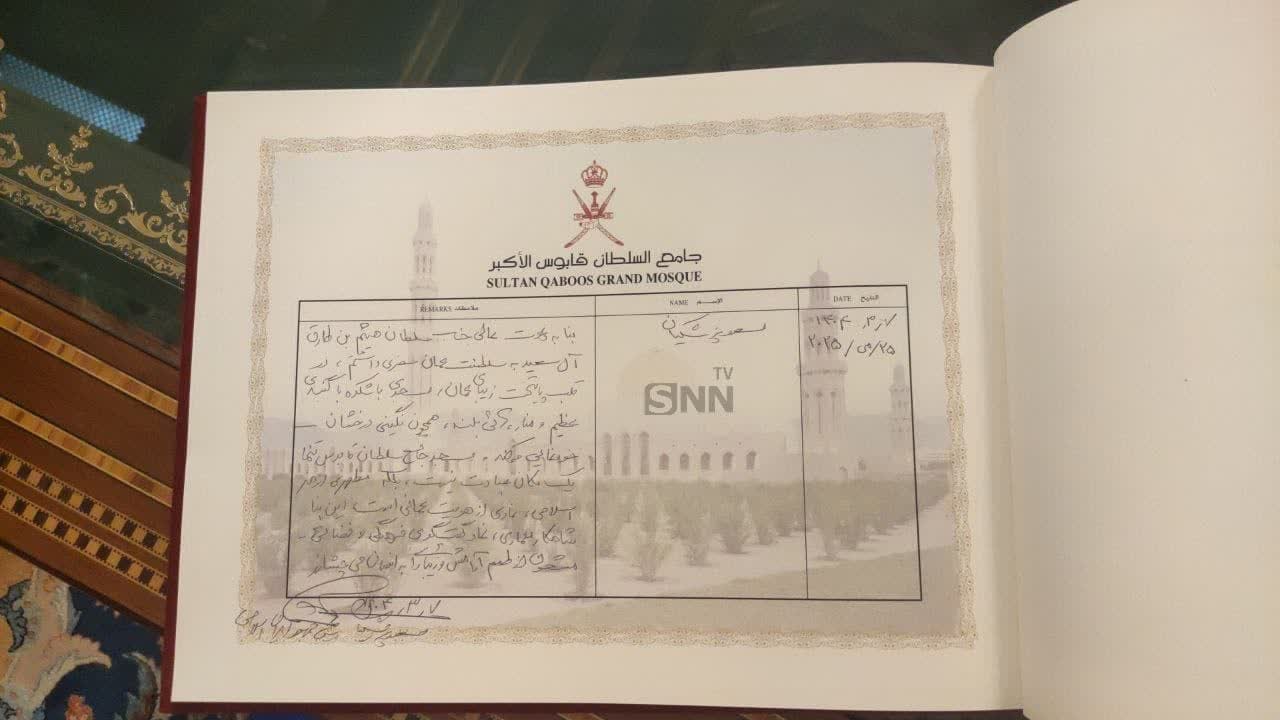 جامع السلطان قابوس الأكبر
SULTAN QABOOS GRAND MOSQUE
ملاحظات REMARKS
الإسم NAME
التاريخ DATE
بنا به دعوت عالی جناب سلطان هیثم بن طارق
آل سعید به سلطنت عمان سفری داشتم، در
قلب پایتخت زیبای عمان، مسجدی باشکوه با گنبدی
عظیم و مناره‌هائی بلند، همچون نگینی درخشان
خودنمایی میکند. مسجد جامع سلطان قابوس تنها
یک مکان عبادت نیست، بلکه مظهری از هنر
اسلامی، نمادی از هویت عمانی است. این بنا
شاهکار معماری، نماد گفتگوی فرهنگی و فضائی
طعم آرامش و زیبائی را به انسان می چشاند
مسعود پزشکیان
۱۴۰۴/۳/۷
۲۰۲۵/می/۲۵
SNN TV
۱۴۰۴/۳/۷
مسعود پزشکیان
رئیس جمهوری اسلامی